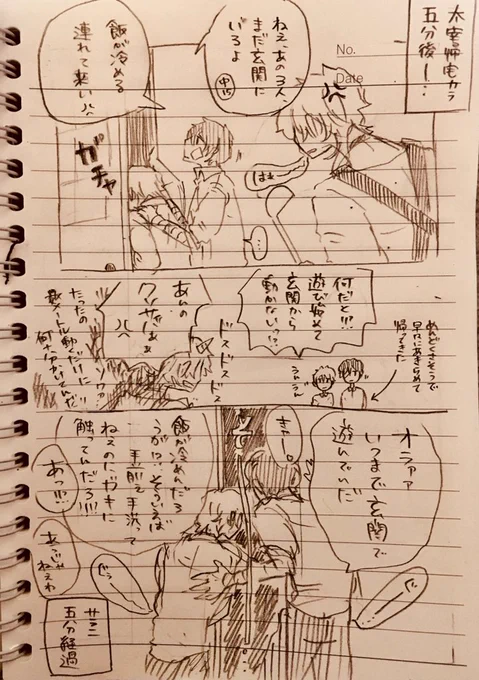 太宰帰宅カラ
五分後ー‥
No.
Date
ねえ、あの3人、
まだ玄関に
いるよ
飯が冷める
連れて来い
はぁ
ガチャ
…
めんどくさそうで
早々にあきらめて
帰ってきた
何だと!!!
遊び始めて
玄関から
動かない!?
うんうん
ドスドスドス
あんの
クソサバぁぁ
たったの
数メートル動くだけに
オラァァ
いつまで玄関で
遊んでいだ
きゃー
飯が冷めんだろ
うが!!、そういえば
手前ェ手洗って
ねぇのにガキに
触っていだろ!!!
あっ!!!
あっじゃ
ねぇわ
サラニ
五分経過